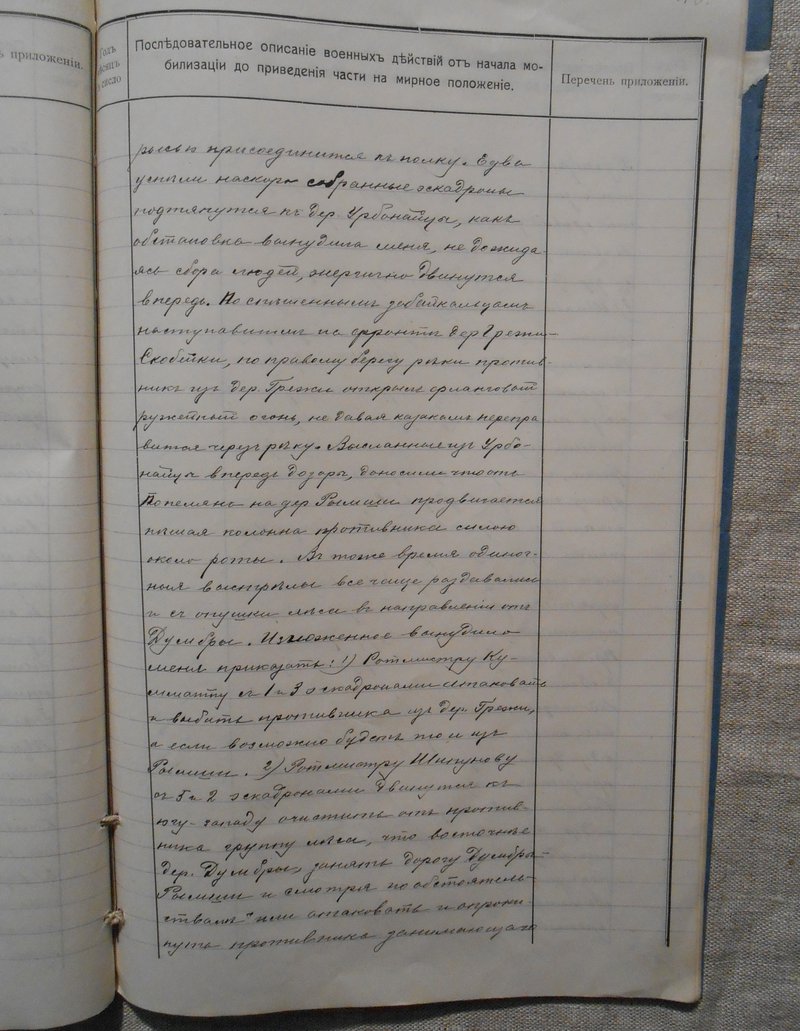 ъ приложеній.
Годъ
мѣсяцъ
и число
Послѣдовательное описаніе военныхъ дѣйствій отъ начала мо-
билизаціи до приведенія части на мирное положеніе.
Перечень приложеній.
рысью присоединится къ полку. Едва
успѣли наскоро собранные эскадроны
подтянутся къ дер. Урбонайцы, какъ
обстановка вынудила меня, не дожида-
ясь сбора людей, энергично двинутся
впередъ. По спѣшеннымъ забайкальцамъ
наступавшимъ на фронтъ дер Грежи-
Скобейки, по правому берегу рѣки против-
никъ изъ дер. Грежи открылъ фланговый
ружейный огонь, не давая казакамъ перепра
вится черезъ рѣку. Высланные изъ Урбо-
найцы впередъ дозоры, доносили что отъ
Попеляне на дер Рымши продвигается
пѣшая колонна противника силою
около роты. Въ тоже время одиноч-
ныя выстрѣлы все чаще раздавались
и съ опушки лѣса въ направленіи отъ
Думбры. Изложенное вынудило
меня приказать: 1) Ротмистру
съ 1 и 3 эскадронами атаковать
и выбить противника изъ дер. Грежи,
а если возможно будетъ то и изъ
Рымши. 2) Ротмистру Шипунову
съ 5 и 2 эскадронами двинутся къ
юго-западу очистить отъ против-
ника группу лѣса, что восточнѣе
дер. Думбры, занять дорогу Думбры-
Рымши и смотря по обстоятель-
ствамъ или атаковать и опроки-
нуть противника занимающаго